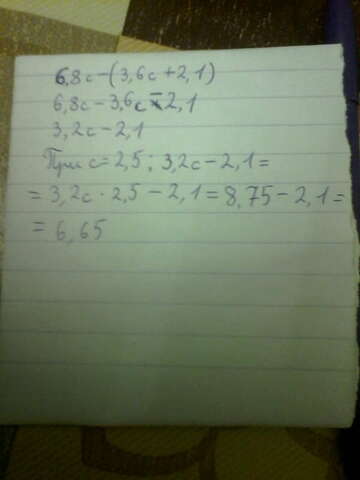 6,8c-(3,6c+2,1)
6,8c-3,6c-2,1
3,2c-2,1
При c=2,5; 3,2c-2,1=
=3,2c·2,5-2,1=8,75-2,1=
=6,65